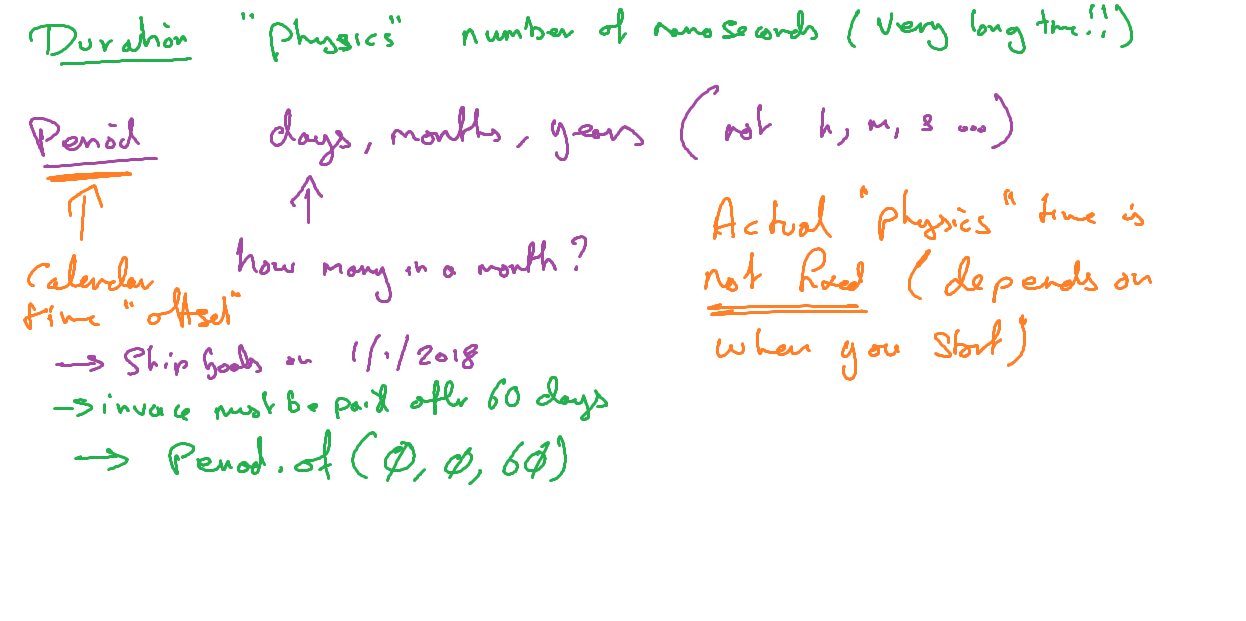 Duration "physics" number of nanoseconds (very long time!!)
Period days, months, years (not h, m, s ...)
how many in a month?
Calendar
time "offset"
Actual "physics" time is
not fixed (depends on
when you start)
→ Ship Goods on 1/1/2018
→ invoice must be paid after 60 days
→ Period.of(0, 0, 60)